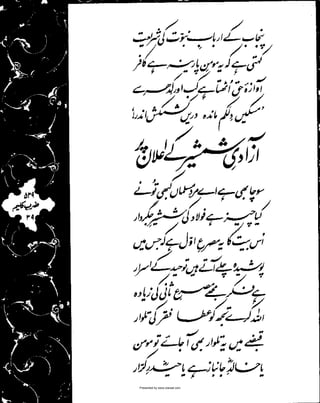 پنجاب کے اربابِ نبوت کی شریعت
کہتی ہے کہ یہ مومنِ پارینہ ہے کافر
آوازۂ حق اٹھتا ہے کب اور کدھر سے
'مسکیں ولکم ماندہ دریں کشمکش اندر!'
آزادیِ شمشیر کے اعلان پر
سوچا بھی ہے اے مردِ مسلماں کبھی تو نے
کیا چیز ہے فولاد کی شمشیرِ جگردار
اس بیت کا یہ مصرعِ اول ہے کہ جس میں
پوشیدہ چلے آتے ہیں توحید کے اسرار
ہے فکر مجھے مصرعِ ثانی کی زیادہ
اللہ کرے تجھ کو عطا فقر کی تلوار
قبضے میں یہ تلوار بھی آ جائے تو مومن
یا خالدِؓ جانباز ہے یا حیدرِؓ کرّار
۵۳۹
ضربِ کلیم
۳۹
Presented by www.ziaraat.com